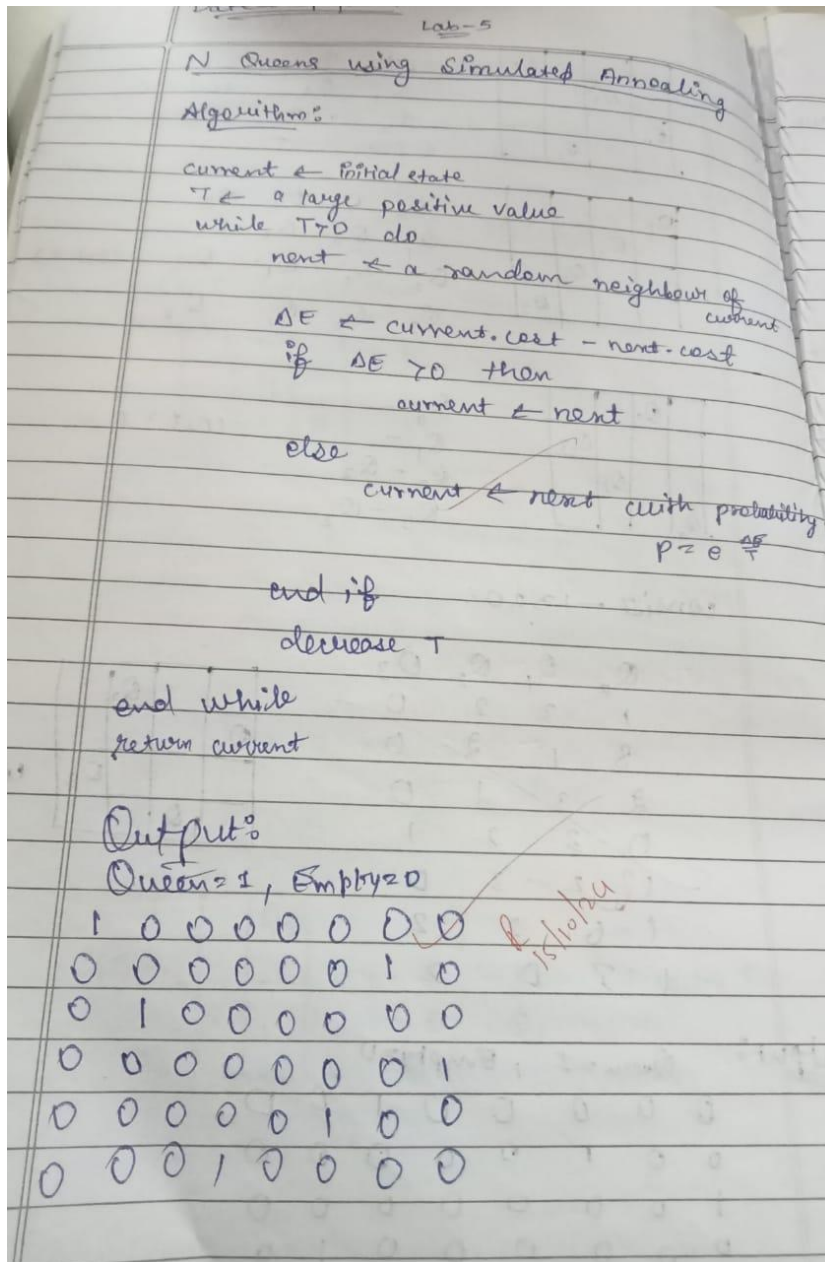 Lab-5
N Queens using Simulated Annealing
Algorithm:
current ← initial state
T ← a large positive value
while T>0 do
next ← a random neighbour of
current
ΔE ← current.cost - next.cost
if ΔE >0 then
current ← next
else
current ← next with probability
p = e ΔE/T
end if
decrease T
end while
return current
Output:
Queen=1, Empty=0
1 0 0 0 0 0 0 0
0 0 0 0 0 0 1 0
0 1 0 0 0 0 0 0
0 0 0 0 0 0 0 1
0 0 0 0 0 1 0 0
0 0 0 1 0 0 0 0
15/10/24